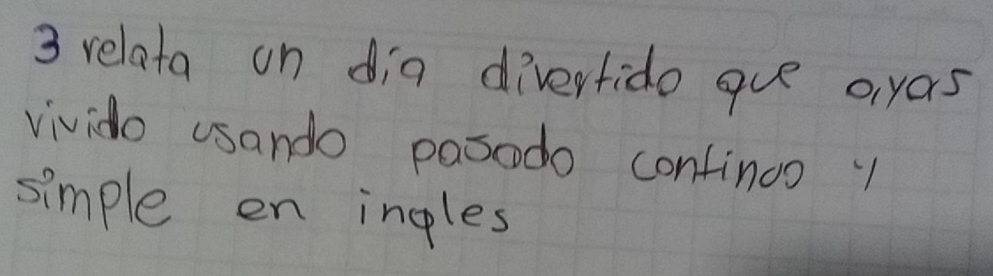 3 relata un día divertido que ayas
vivido usando pasado continuo y
simple en ingles